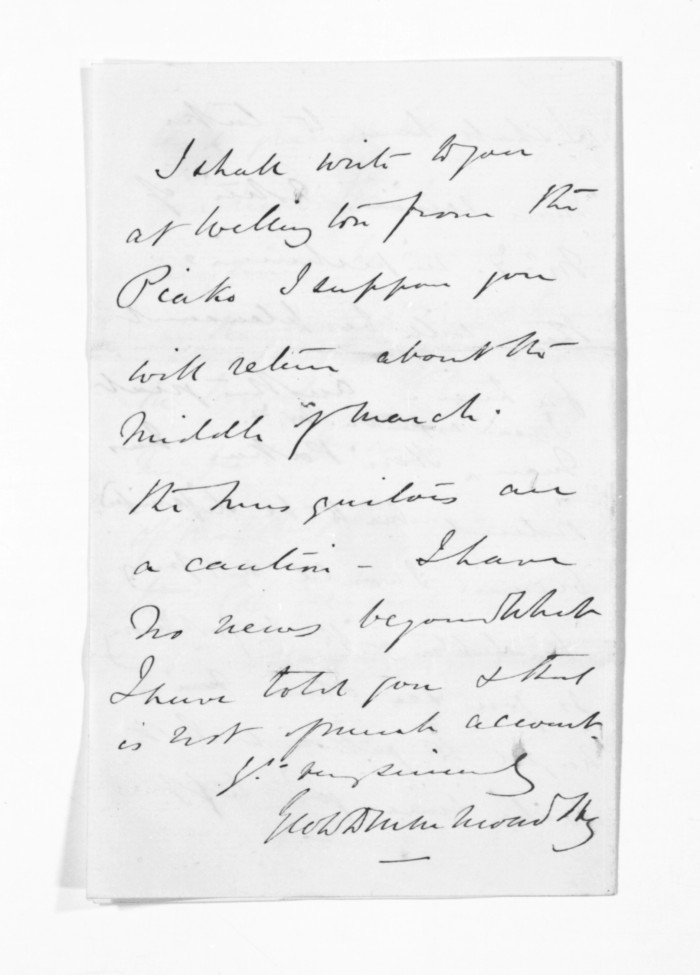 I shall write to you
at Wellington from the
Piako I suppose you
will return about the
Middle of March.
the musquitoes are
a caution - I have
no news beyond which
I have told you & that
is not of much account.
Yrs very sincerely
Geo Drummond Hay